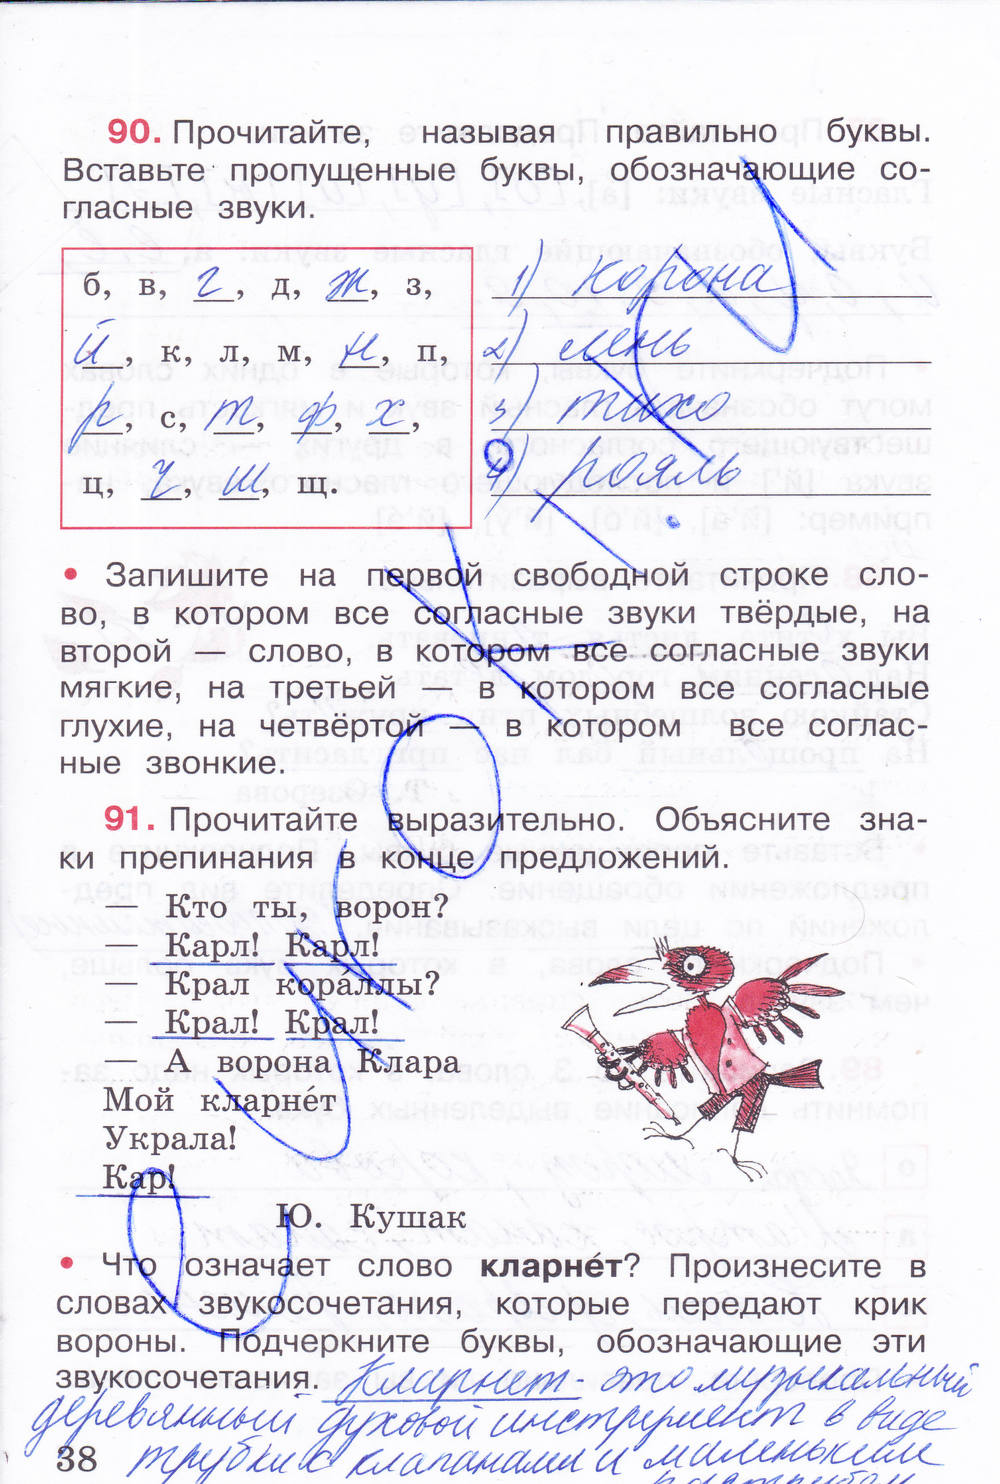 90. Прочитайте, называя правильно буквы.
Вставьте пропущенные буквы, обозначающие со-
гласные звуки.
б, в, г, д, ж, з,
й, к, л, м, н, п,
р, с, т, ф, х,
ц, ч, ш, щ.
1) корона
2) лень
3) тихо
4) рояль
• Запишите на первой свободной строке сло-
во, в котором все согласные звуки твёрдые, на
второй — слово, в котором все согласные звуки
мягкие, на третьей — в котором все согласные
глухие, на четвёртой — в котором все соглас-
ные звонкие.
91. Прочитайте выразительно. Объясните зна-
ки препинания в конце предложений.
— Кто ты, ворон?
— Карл! Карл!
— Крал кораллы?
— Крал! Крал!
— А ворона Клара
Мой кларнет
Украла!
Кар!
Ю. Кушак
• Что означает слово кларне́т? Произнесите в
словах звукосочетания, которые передают крик
вороны. Подчеркните буквы, обозначающие эти
звукосочетания. Кларнет - это музыкальный
деревянный духовой инструмент в виде
38 трубки с клапанами и маленьким